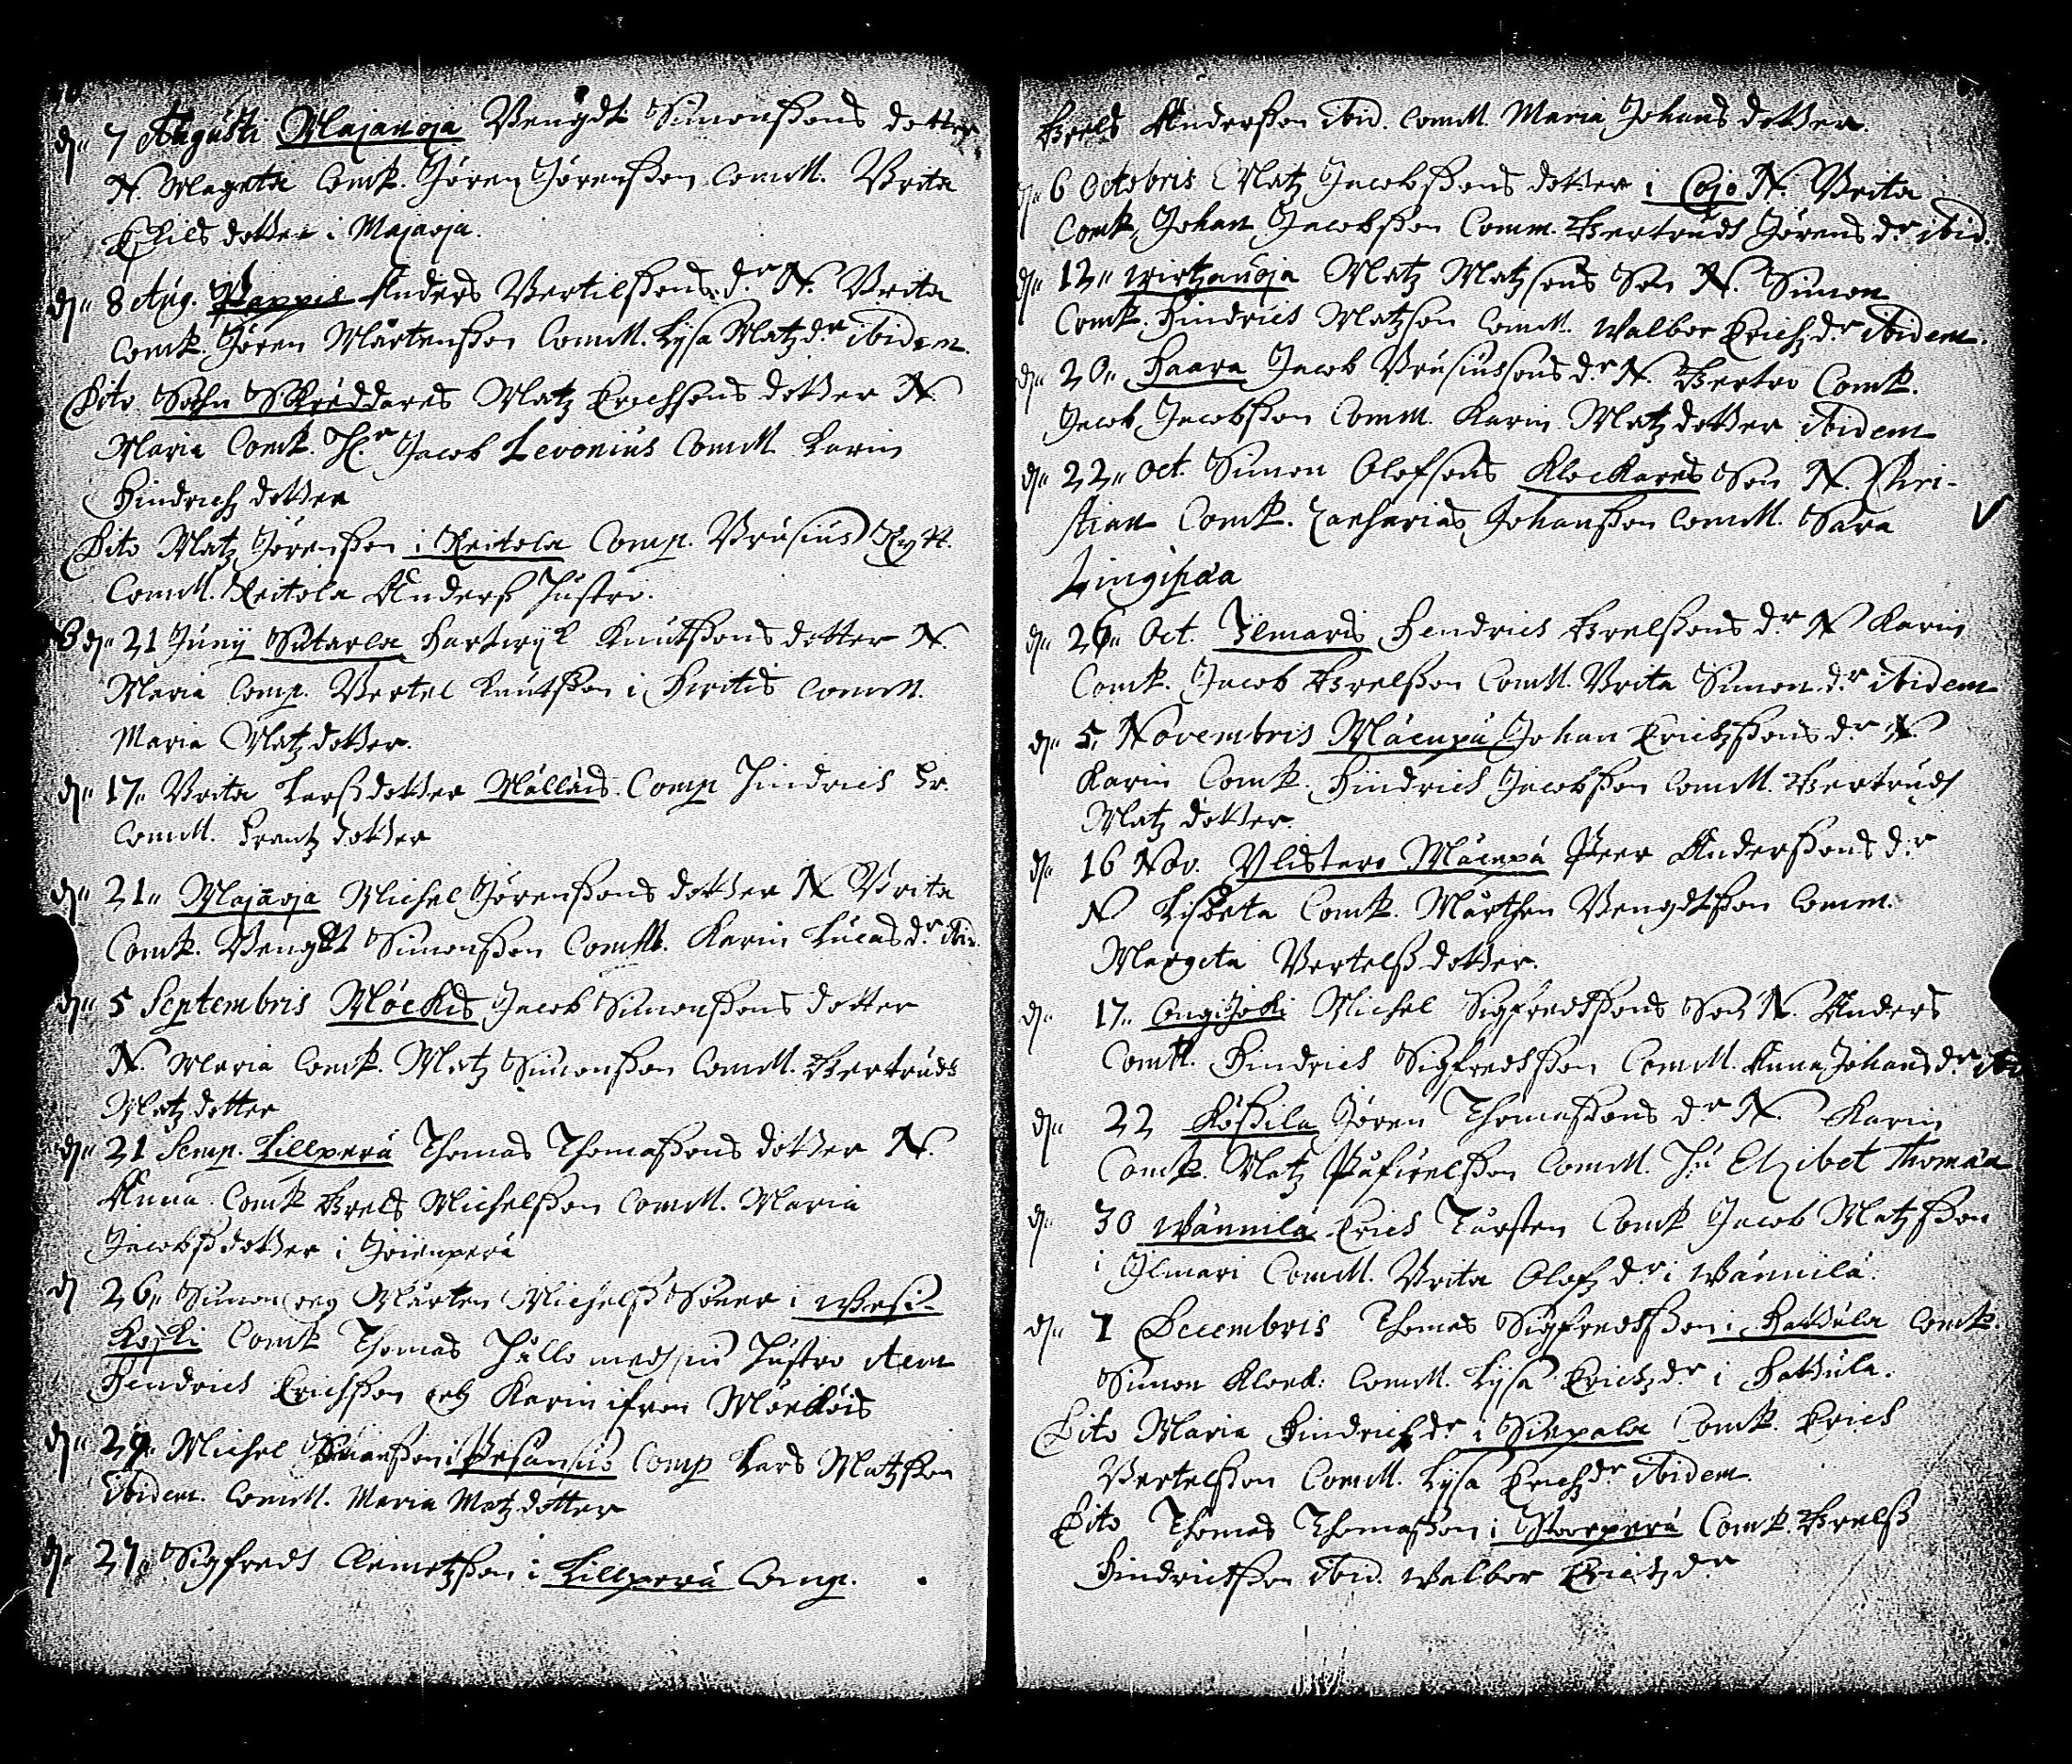 dn 7 Augusti Majanoja Bengdt Simonssons dotter
N. Magreta Comp. Jören Jörensson Comm. Brita
Eskils dotter i Majaoja.
dn 8 Aug. Pappis Anders Bertilssons dr N. Brita
Comp. Jören Mårtensson Comm. Lysa Matz dr ibidem.
Dito Sohn Skreddares Matz Erichsons dotter N.
Maria Comp. Hr Jacob Levonius Comm. Karin
Hindrichz dotter
Dito Matz Jörensson i Reitola Comp. Brusius Rytt.
Comm. Reitola Anderss hustro.
dn 21 Juny Sutarla Hartwyk Knutssons dotter N.
Maria Comp. Bertel Knutsson i Hiritis Comm.
Maria Matz dotter.
dn 17 Brita Larssdotter Mälläis. Comp Hindrich Fr.
Comm. Frantz dotter
dn 21 Majaoja Michel Jörenssons dotter N Brita
Comp. Bengdt Simonsson Comm. Karin Lucas dr ibid.
dn 5 Septembris Möckis Jacob Simonssons dotter
N. Maria Comp. Matz Simonsson Comm. Gertrudh
Matz dotter
dn 21 Semp. Lillperä Thomas Thomassons dotter N.
Anna Comp Grels Michelsson Comm. Maria
Jacobssdotter i Joienperä
d 26 Simon och Mårten Michelss Söner i Wesi-
Koski Comp Thomas Hållo medh sin hustro item
Hendrich Erichsson och Karin ifron Mörköis
dn 29 Michel i Pesänsuo Comp Lars Matzsson
ibidem. Comm. Maria Matz dotter
dn 27 Sigfredh Clemetzson i Lillperä Comp.
Grels Andersson ibid. Comm. Maria Johans dotter.
dn 6 Octobris Matz Jacobssons dotter i Cojo N. Brita
Comp. Johan Jacobsson Comm. Gertrudh Jörens dr ibid.
dn 12 Wirtzanoja Matz Matzsons Son N. Simon
Comp. Hindrich Matzson Comm. Walbor Erichz dr ibidem.
dn 20 Haara Jacob Brusiussons dr N. Gertro Comp.
Jacob Jacobsson Comm. Karin Matz dotter ibidem
dn 22 Oct. Simon Olofsons Klockares Son N. Chri-
stian Comp. Zacharias Johansson Comm. Sara
Lingipaa
dn 26 Oct. Ilmaris Hendrich Grelssons dr N Karin
Comp. Jacob Grelsson Comm. Brita Simon dr ibidem
dn 5 Novembris Mäenpä Johan Erichzssons dr N.
Karin Comp. Hindrich Jacobsson Comm. Gertrudh
Matz dotter.
dn 16 Nov. Ylistaro Mäenpä Peer Anderssons dr
N Lisbeta Comp. Mårthen Bengdtsson Comm.
Margeta Bertelss dotter.
dn 17 Ongijoki Michel Sigfredssons Son N. Anders
Comp. Hindrich Sigfredsson Comm. Anna Johans dr ibid
dn 22 Kossila Jören Thomassons dr N. Karin
Comp. Matz Comm. Hu Elzibet Thomæa
d 30 Wännilä Erich Tursten Comp Jacob Matzsson
i Ilmari Comm. Brita Olofz dr i Wännilä.
dn 7 Decembris Thomas Sigfredsson i Hattula Comp.
Simon Klock: Comm. Lysa Erichz dr i Hattula.
Dito Maria Hindrichz dr i Siepala Comp. Erich
Bertelsson Comm. Lysa Erichz dr ibidem.
Dito Thomas Thomasson i Storperä Comp. Grelss
Hindrichsson ibid. Walbor Erichz dr